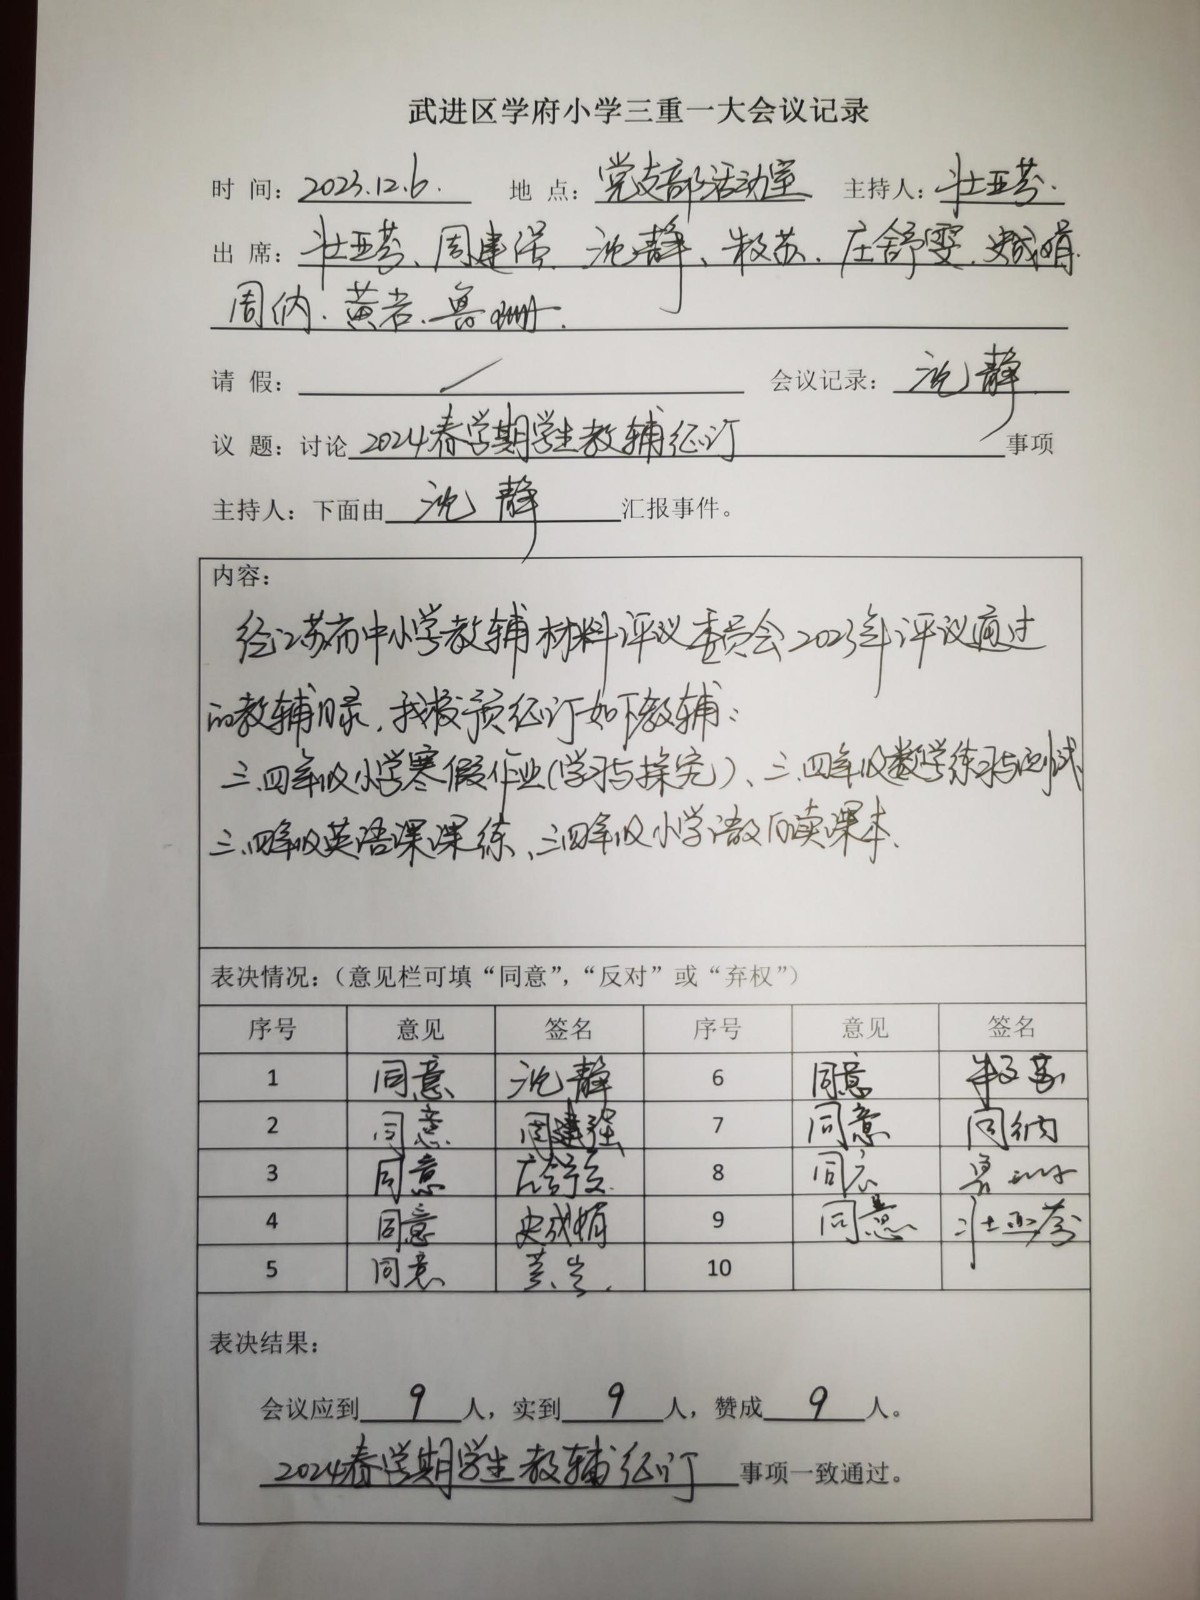 武进区学府小学三重一大会议记录
时 间: 2023.12.6. 地 点: 党支部活动室 主持人: 壮亚芬.
出 席: 壮亚芬、周建强、沈静、朱苏、庄舒雯、史成娟
周纳、黄岩、鲁珊.
请 假: / 会议记录: 沈静
议 题: 讨论 2024春学期学生教辅征订 事项
主持人: 下面由 沈静 汇报事件。
内容:
经江苏省中小学教辅材料评议委员会2023年评议通过
的教辅目录,我校预征订如下教辅:
三、四年级小学寒假作业(学习与探究)、三、四年级数学练习与测试、
三、四年级英语课课练、三四年级小学语文阅读课本.
表决情况:(意见栏可填“同意”,“反对”或“弃权”)
序号 意见 签名 序号 意见 签名
1 同意 沈静 6 同意
2 同意 周建强 7 同意 周纳
3 同意 庄舒雯 8 同意 鲁珊
4 同意 史成娟 9 同意 壮亚芬
5 同意 黄岩. 10
表决结果:
会议应到 9 人,实到 9 人,赞成 9 人。
2024春学期学生教辅征订 事项一致通过。